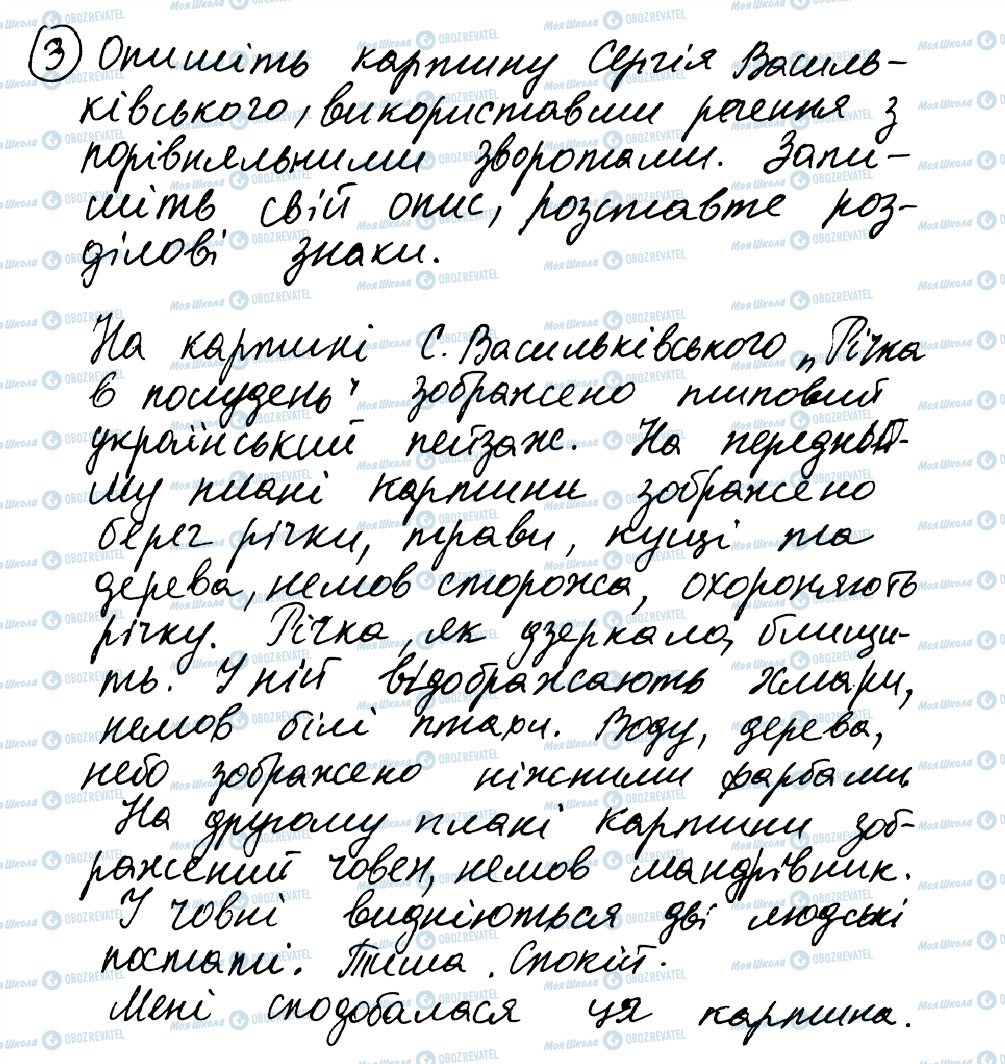 3 Опишіть картину Сергія Василь-
ківського, використавши речення з
порівняльними зворотами. Запи-
шіть свій опис, розставте роз-
ділові знаки.
На картині С. Васильківського „Річка
в полудень" зображено типовий
український пейзаж. На передньо-
му плані картини зображено
берег річки, трави, кущі та
дерева, немов сторожа, охороняють
річку. Річка, як дзеркало, блищи-
ть. У ній відображають хмари,
немов білі птахи. Воду, дерева,
небо зображено ніжними фарбами.
На другому плані картини зоб-
ражений човен, немов мандрівник.
У човні видніються дві людські
постаті. Тиша. Спокій.
Мені сподобалася ця картина.